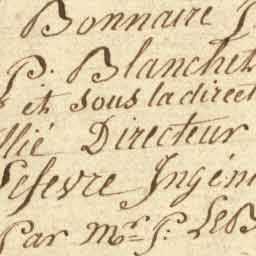 Bonnaire J.
P. Blanchet
et sous la direct
llié Directeur
Lefevre Ingén
Par Mr. J. LeB